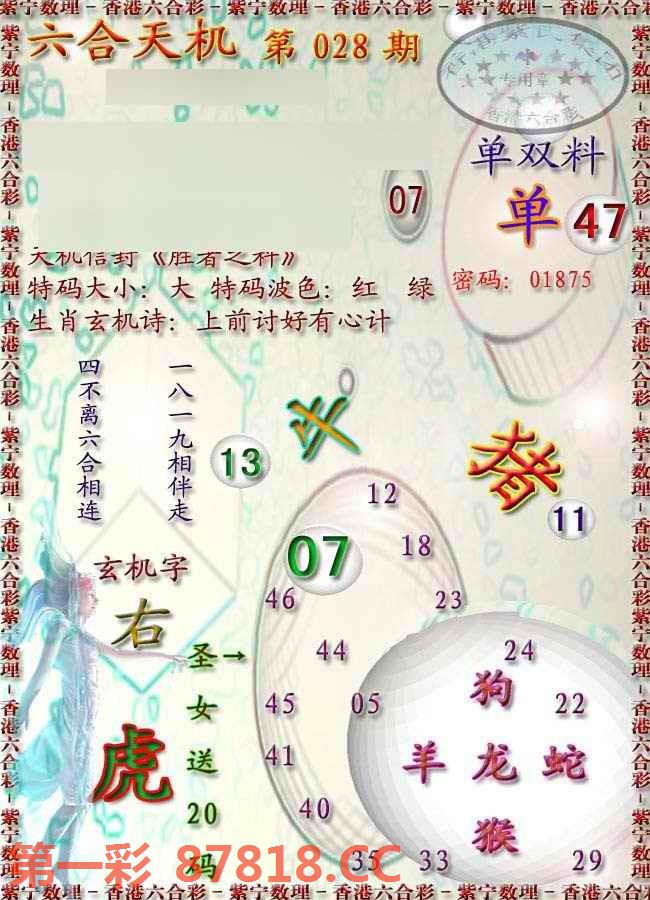 紫宁数理－香港六合彩－紫宁数理－香港六合彩－紫宁数理－香港六合彩
六合天机 第 028 期
专用章
香港六合彩
单双料
07
单 47
天机信封《胜者之料》
特码大小：大 特码波色：红 绿
密码：01875
生肖玄机诗：上前讨好有心计
四不离六合相连
一八一九相伴走
13
猪
11
12
07
18
玄机字
46
23
右
圣女送20码
→
44
24
狗
45
05
22
虎
41
羊 龙 蛇
40
猴
35
33
29
第一彩 87818.CC
紫宁数理－香港六合彩－紫宁数理－香港六合彩－紫宁数理－香港六合彩